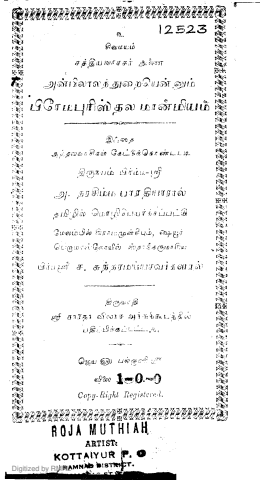 உ
12523
சிவமயம்
சத்தியவாசகர் துணை
அன்பிலாலந்துறையென்னும்
பிரேமபுரிஸ்தல மான்மியம்
இஃதை
கேட்டுக்கொண்டபடி
திருநாமம் பிரம்மஸ்ரீ
அ. நரசிம்ம பாரதியாரால்
தமிழில் மொழிபெயர்க்கப்பட்டு
பெருமாள்கோயில்
ச. சுந்தரமய்யரவர்களால்
ஸ்ரீ சாரதா விலாச அச்சுக்கூடத்தில்
பதிப்பிக்கப்பட்டது.
ஜய ௵
விலை 1-0-0
Copy-Right Registered.
ROJA MUTHIAH
ARTIST:
KOTTAIYUR P. O
RAMNAD DISTRICT.
Digitized by